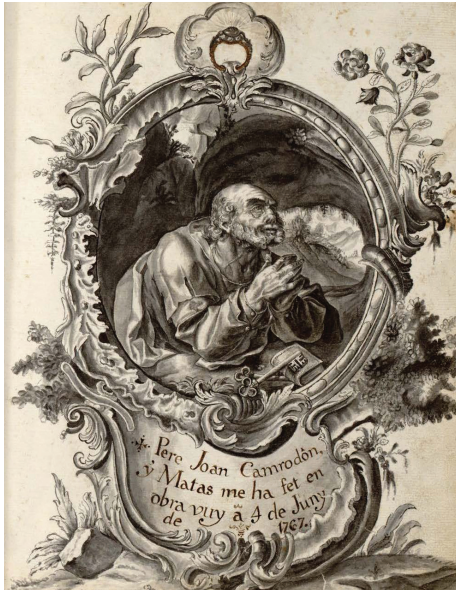 Pere Joan Camrodôn,
y Matas me ha fet en
obra vuy â 4 de Juny
de 1767.